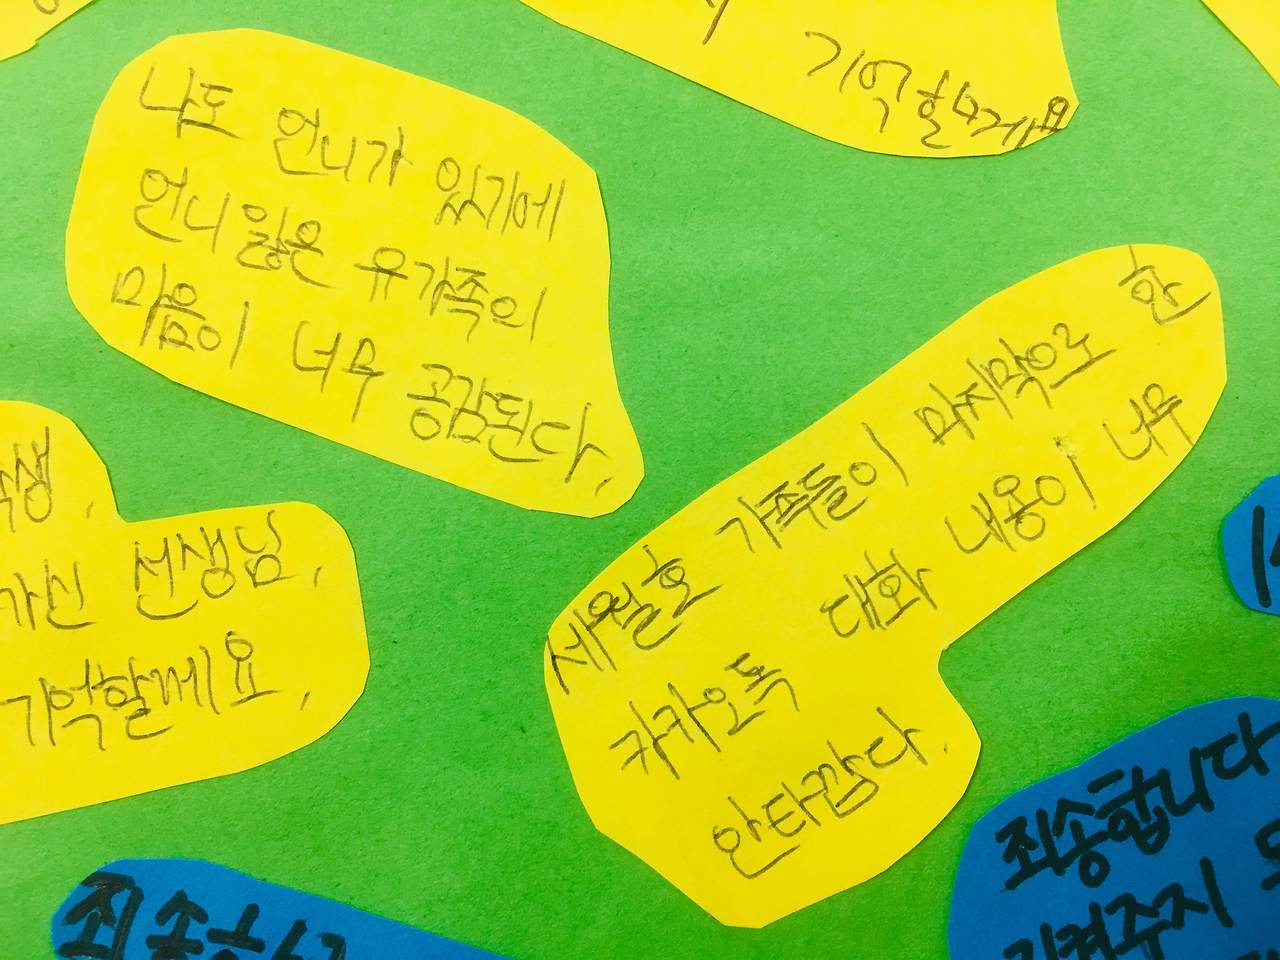 기억할게요
나도 언니가 있기에
언니잃은 유가족의
마음이 너무 공감된다.
가신 선생님,
기억할께요.
세월호 가족들이 마지막으로 한
카카오톡 대화 내용이 너무
안타깝다.
죄송합니다
지켜주지
죄송합